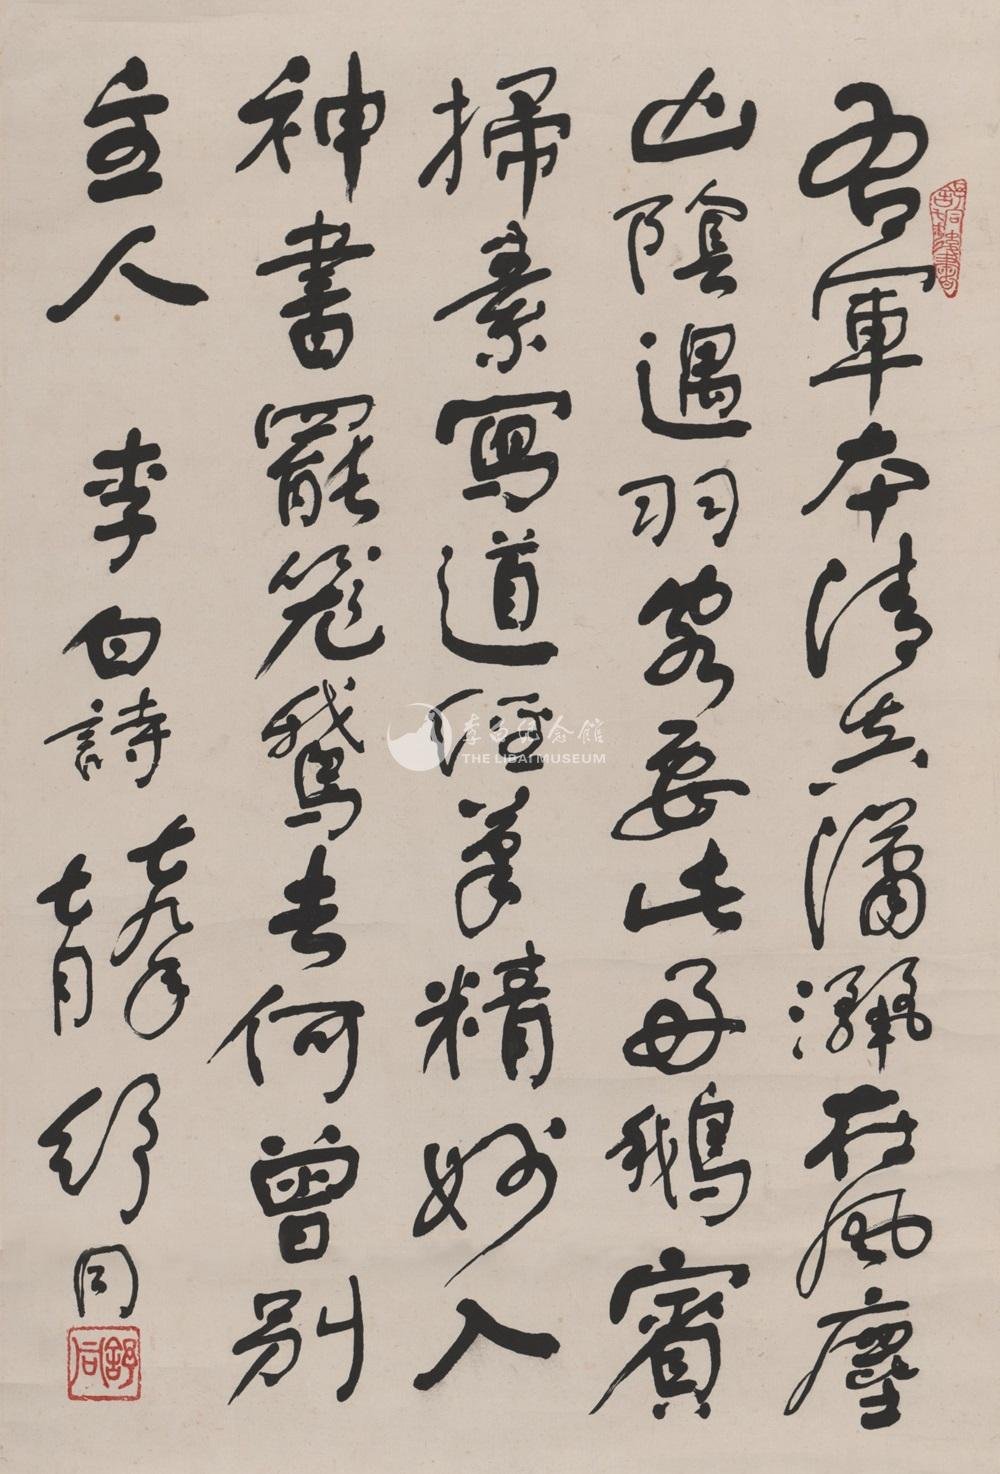 右軍本清真瀟灑在風塵
山陰遇羽客要此好鵝賓
掃素寫道經筆精妙入
神書罷籠鵝去何曾別
主人 李白詩 七九年
七月 舒同
舒同
李白纪念館
THE LIBAI MUSEUM